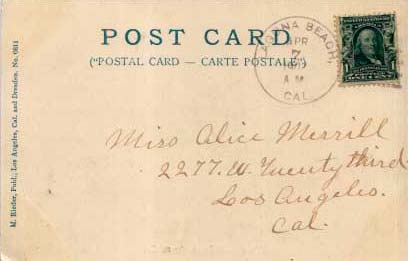 POST CARD
("POSTAL CARD — CARTE POSTALE")
LAGUNA BEACH,
APR
7
A M
CAL
1
M. Rieder, Publ., Los Angeles, Cal. and Dresden. No.
Miss Alice Merrill
2277. W. Twenty third
Los Angeles.
Cal.